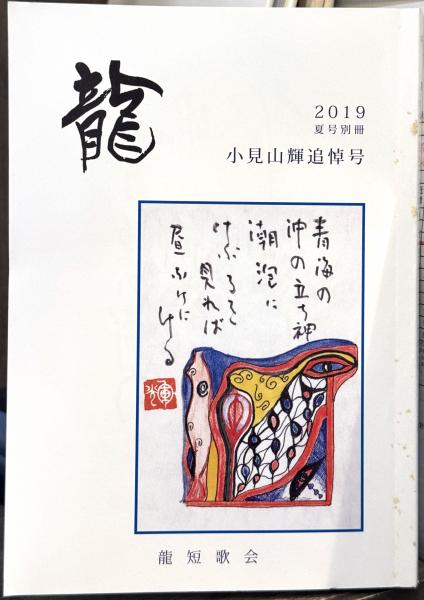 龍
2019
夏号別冊
小見山輝追悼号
青海の
沖の立ち神
潮泡に
けぶるを
見れば
昼ふけに
ける
輝
龍短歌会